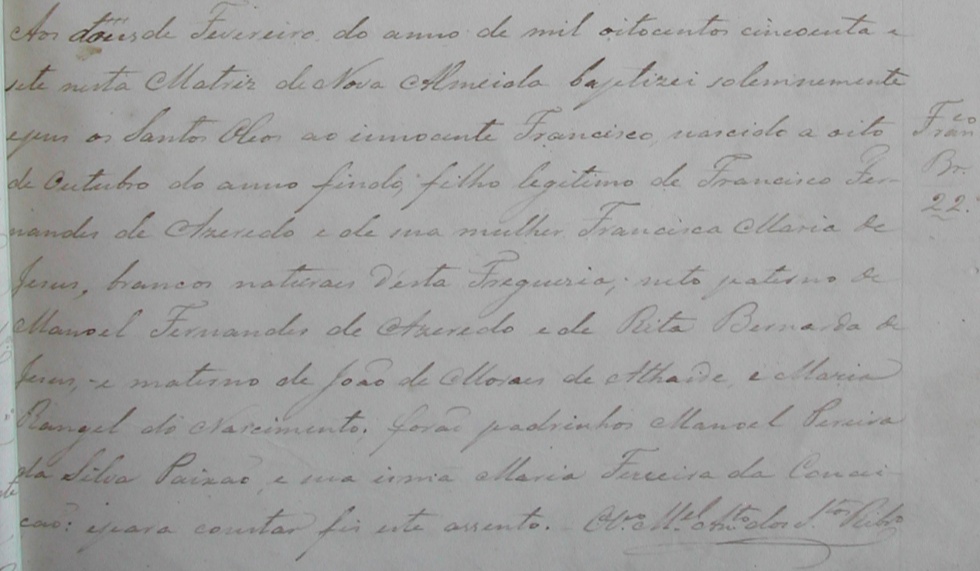 Aos dous de Fevereiro do anno de mil oitocentos cincoenta e
sete nesta Matriz de Nova Almeida baptizei solemnemente
e puz os Santos Oleos ao innocente Francisco, nascido a oito
de Outubro do anno findo, filho legitimo de Francisco Fer-
nandes de Azeredo e de sua mulher Francisca Maria de
Jesus, brancos naturaes d'esta Freguezia; neto paterno de
Manoel Fernandes de Azeredo e de Rita Bernarda de
Jesus, e materno de João de Moraes de Athaide, e Maria
Rangel do Nascimento. forão padrinhos Manoel Pereira
da Silva Paixão, e sua irmã Maria Ferreira da Concei-
cão: e para constar fis este assento. O Vigro Mel Anto dos Stos Ribro
Franco
Br.
22.